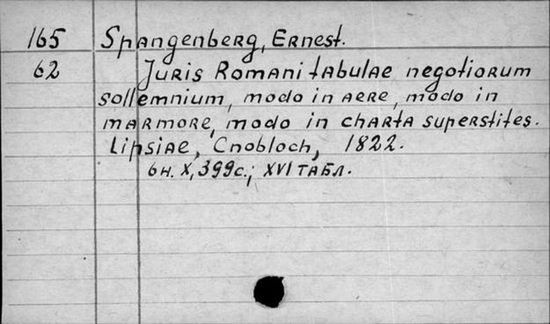 165 Spangenberg, Ernest.
62 Juris Romani tabulae negotiorum
sollemnium, modo in aere, modo in
marmore, modo in charta superstites.
Lipsiae, Cnobloch, 1822.
бн. X, 399с.; XVI табл.